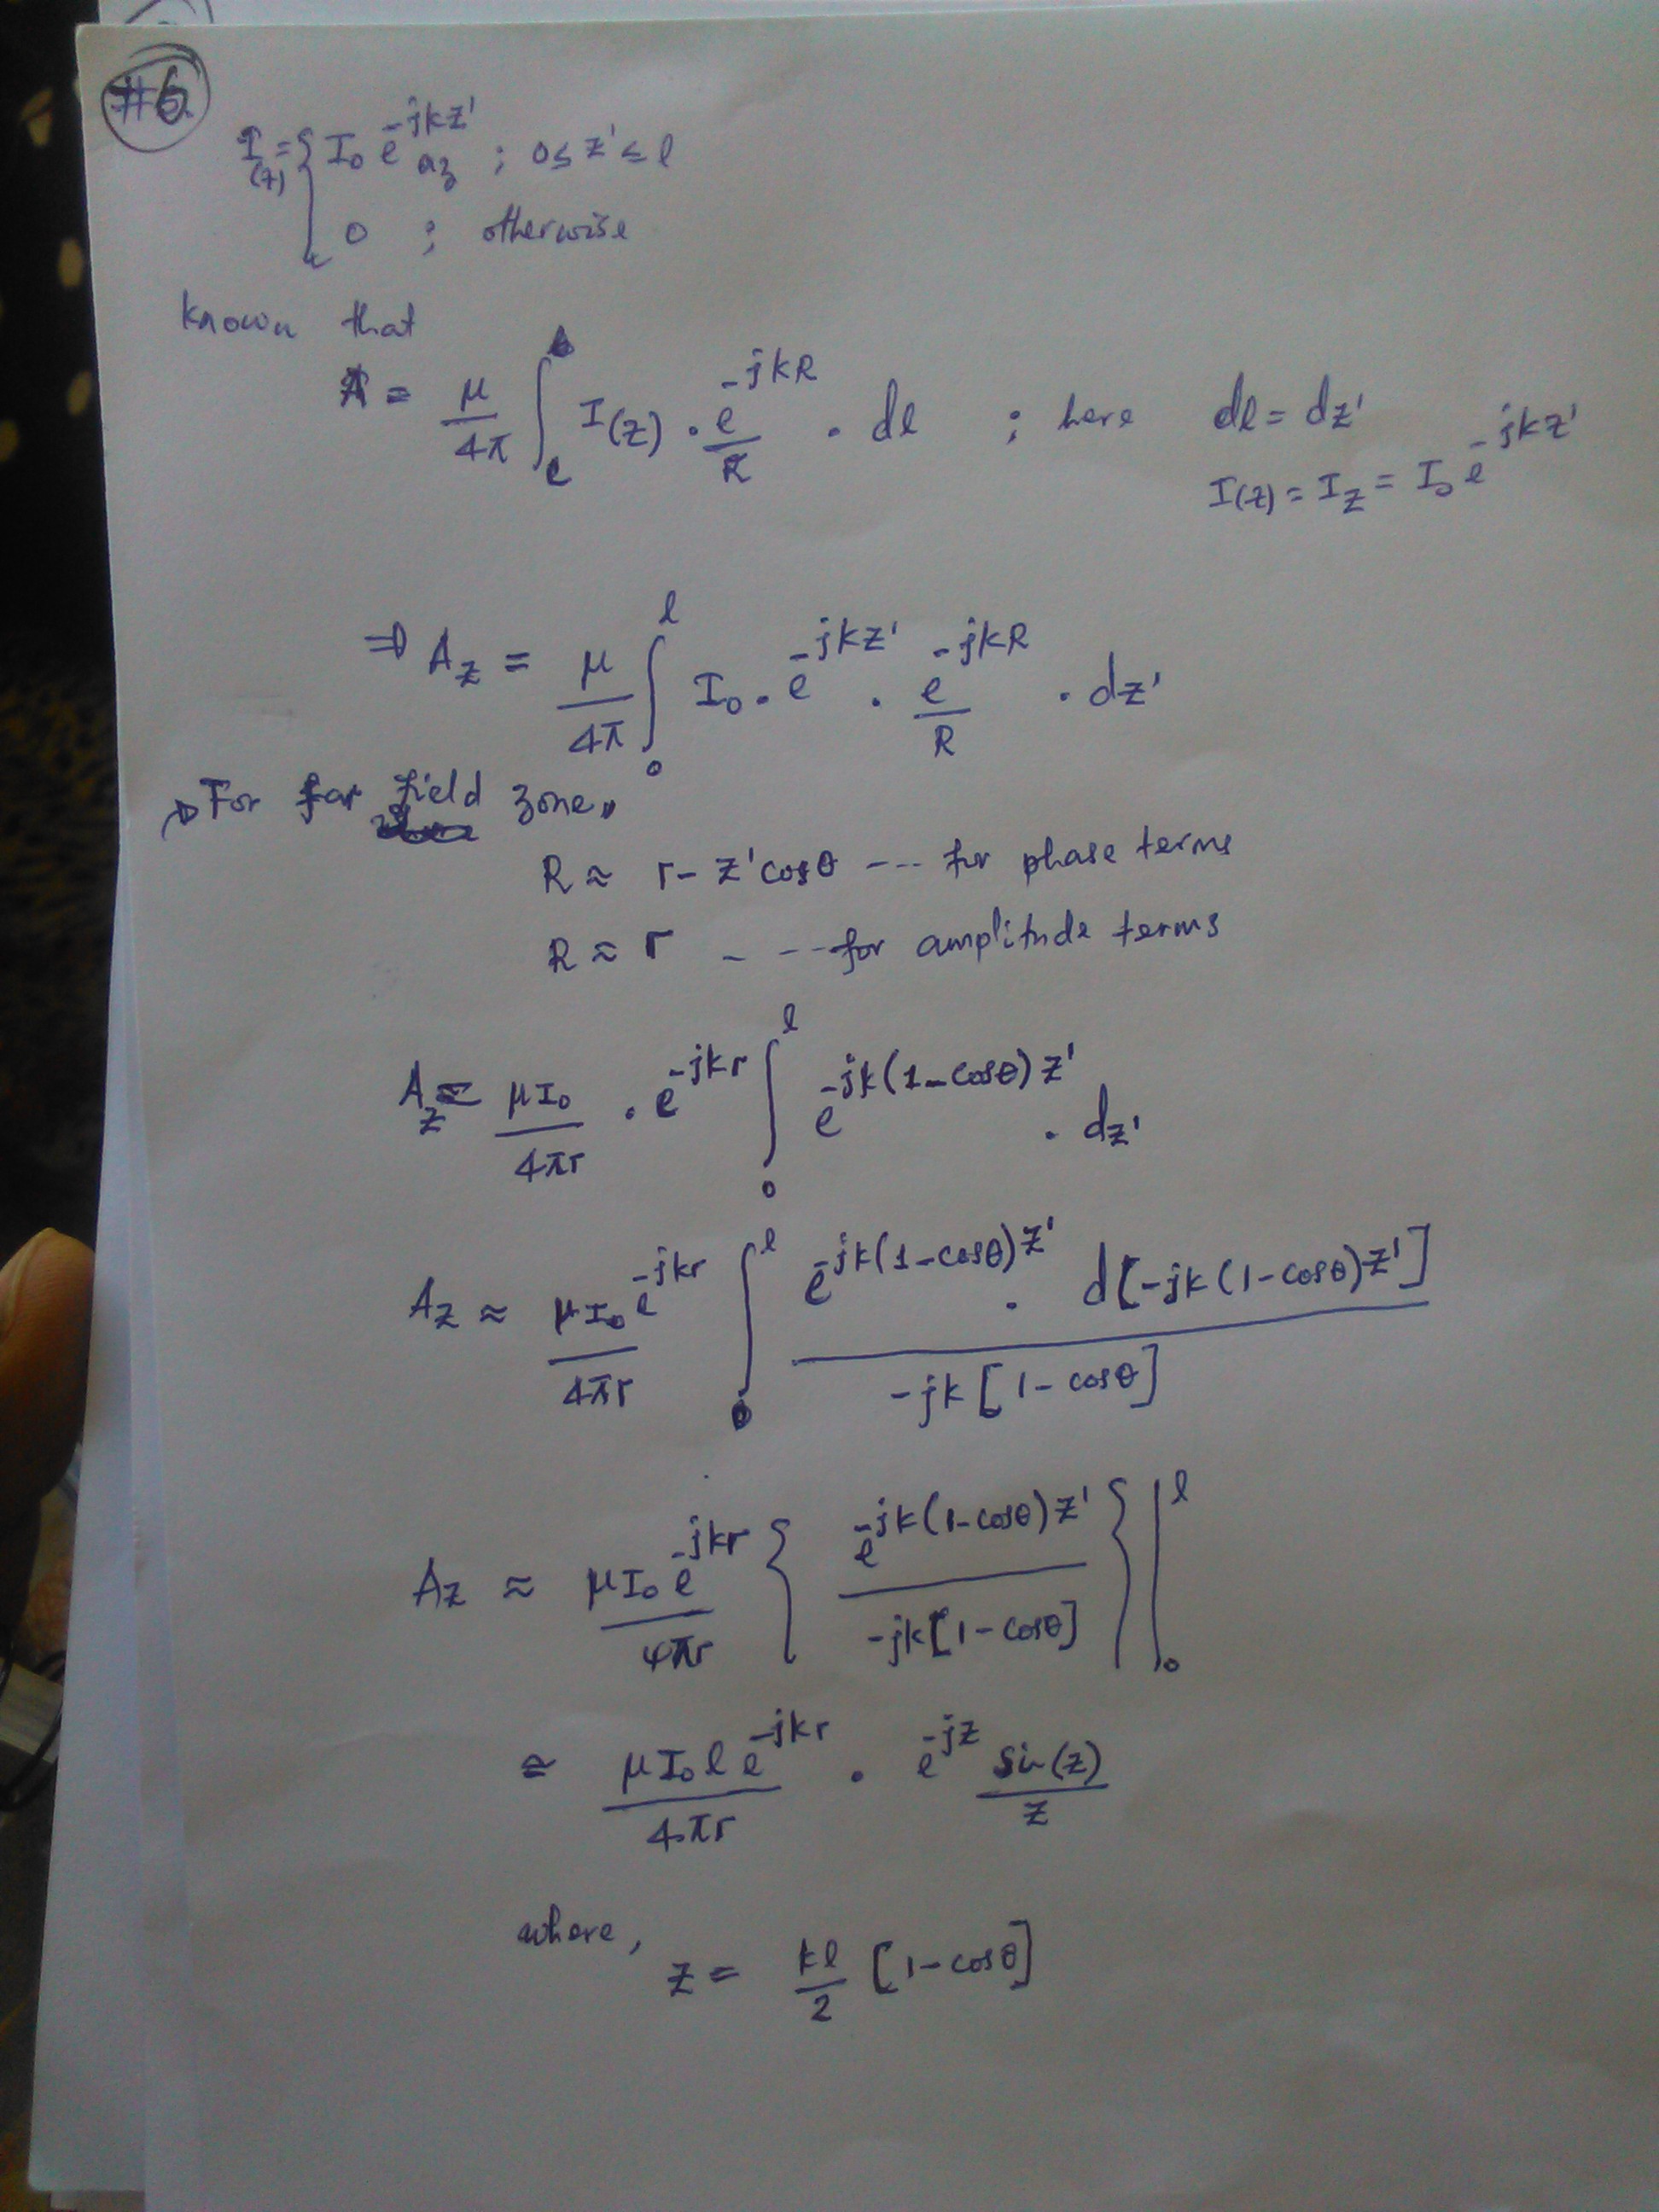 #6
I(z) = { I₀ e^{-jkz'} a_z ; 0 ≤ z' ≤ l
0 ; otherwise
known that
A = μ/4π ∫_c I(z) · e^{-jkR}/R · dl ; here dl = dz'
I(z) = I_z = I₀ e^{-jkz'}
⇒ A_z = μ/4π ∫_0^l I₀ · e^{-jkz'} · e^{-jkR}/R · dz'
→ For far field zone,
R ≈ r - z'cosθ --- for phase terms
R ≈ r - --- for amplitude terms
A_z ≈ μI₀/4πr · e^{-jkr} ∫_0^l e^{-jk(1-cosθ)z'} · dz'
A_z ≈ μI₀e^{-jkr}/4πr ∫_0^l e^{-jk(1-cosθ)z'} · d[-jk(1-cosθ)z'] / -jk[1-cosθ]
A_z ≈ μI₀e^{-jkr}/4πr { e^{-jk(1-cosθ)z'} / -jk[1-cosθ] } |_0^l
≈ μI₀le^{-jkr}/4πr · e^{-jz} sin(z)/z
where,
z = kl/2 [1-cosθ]